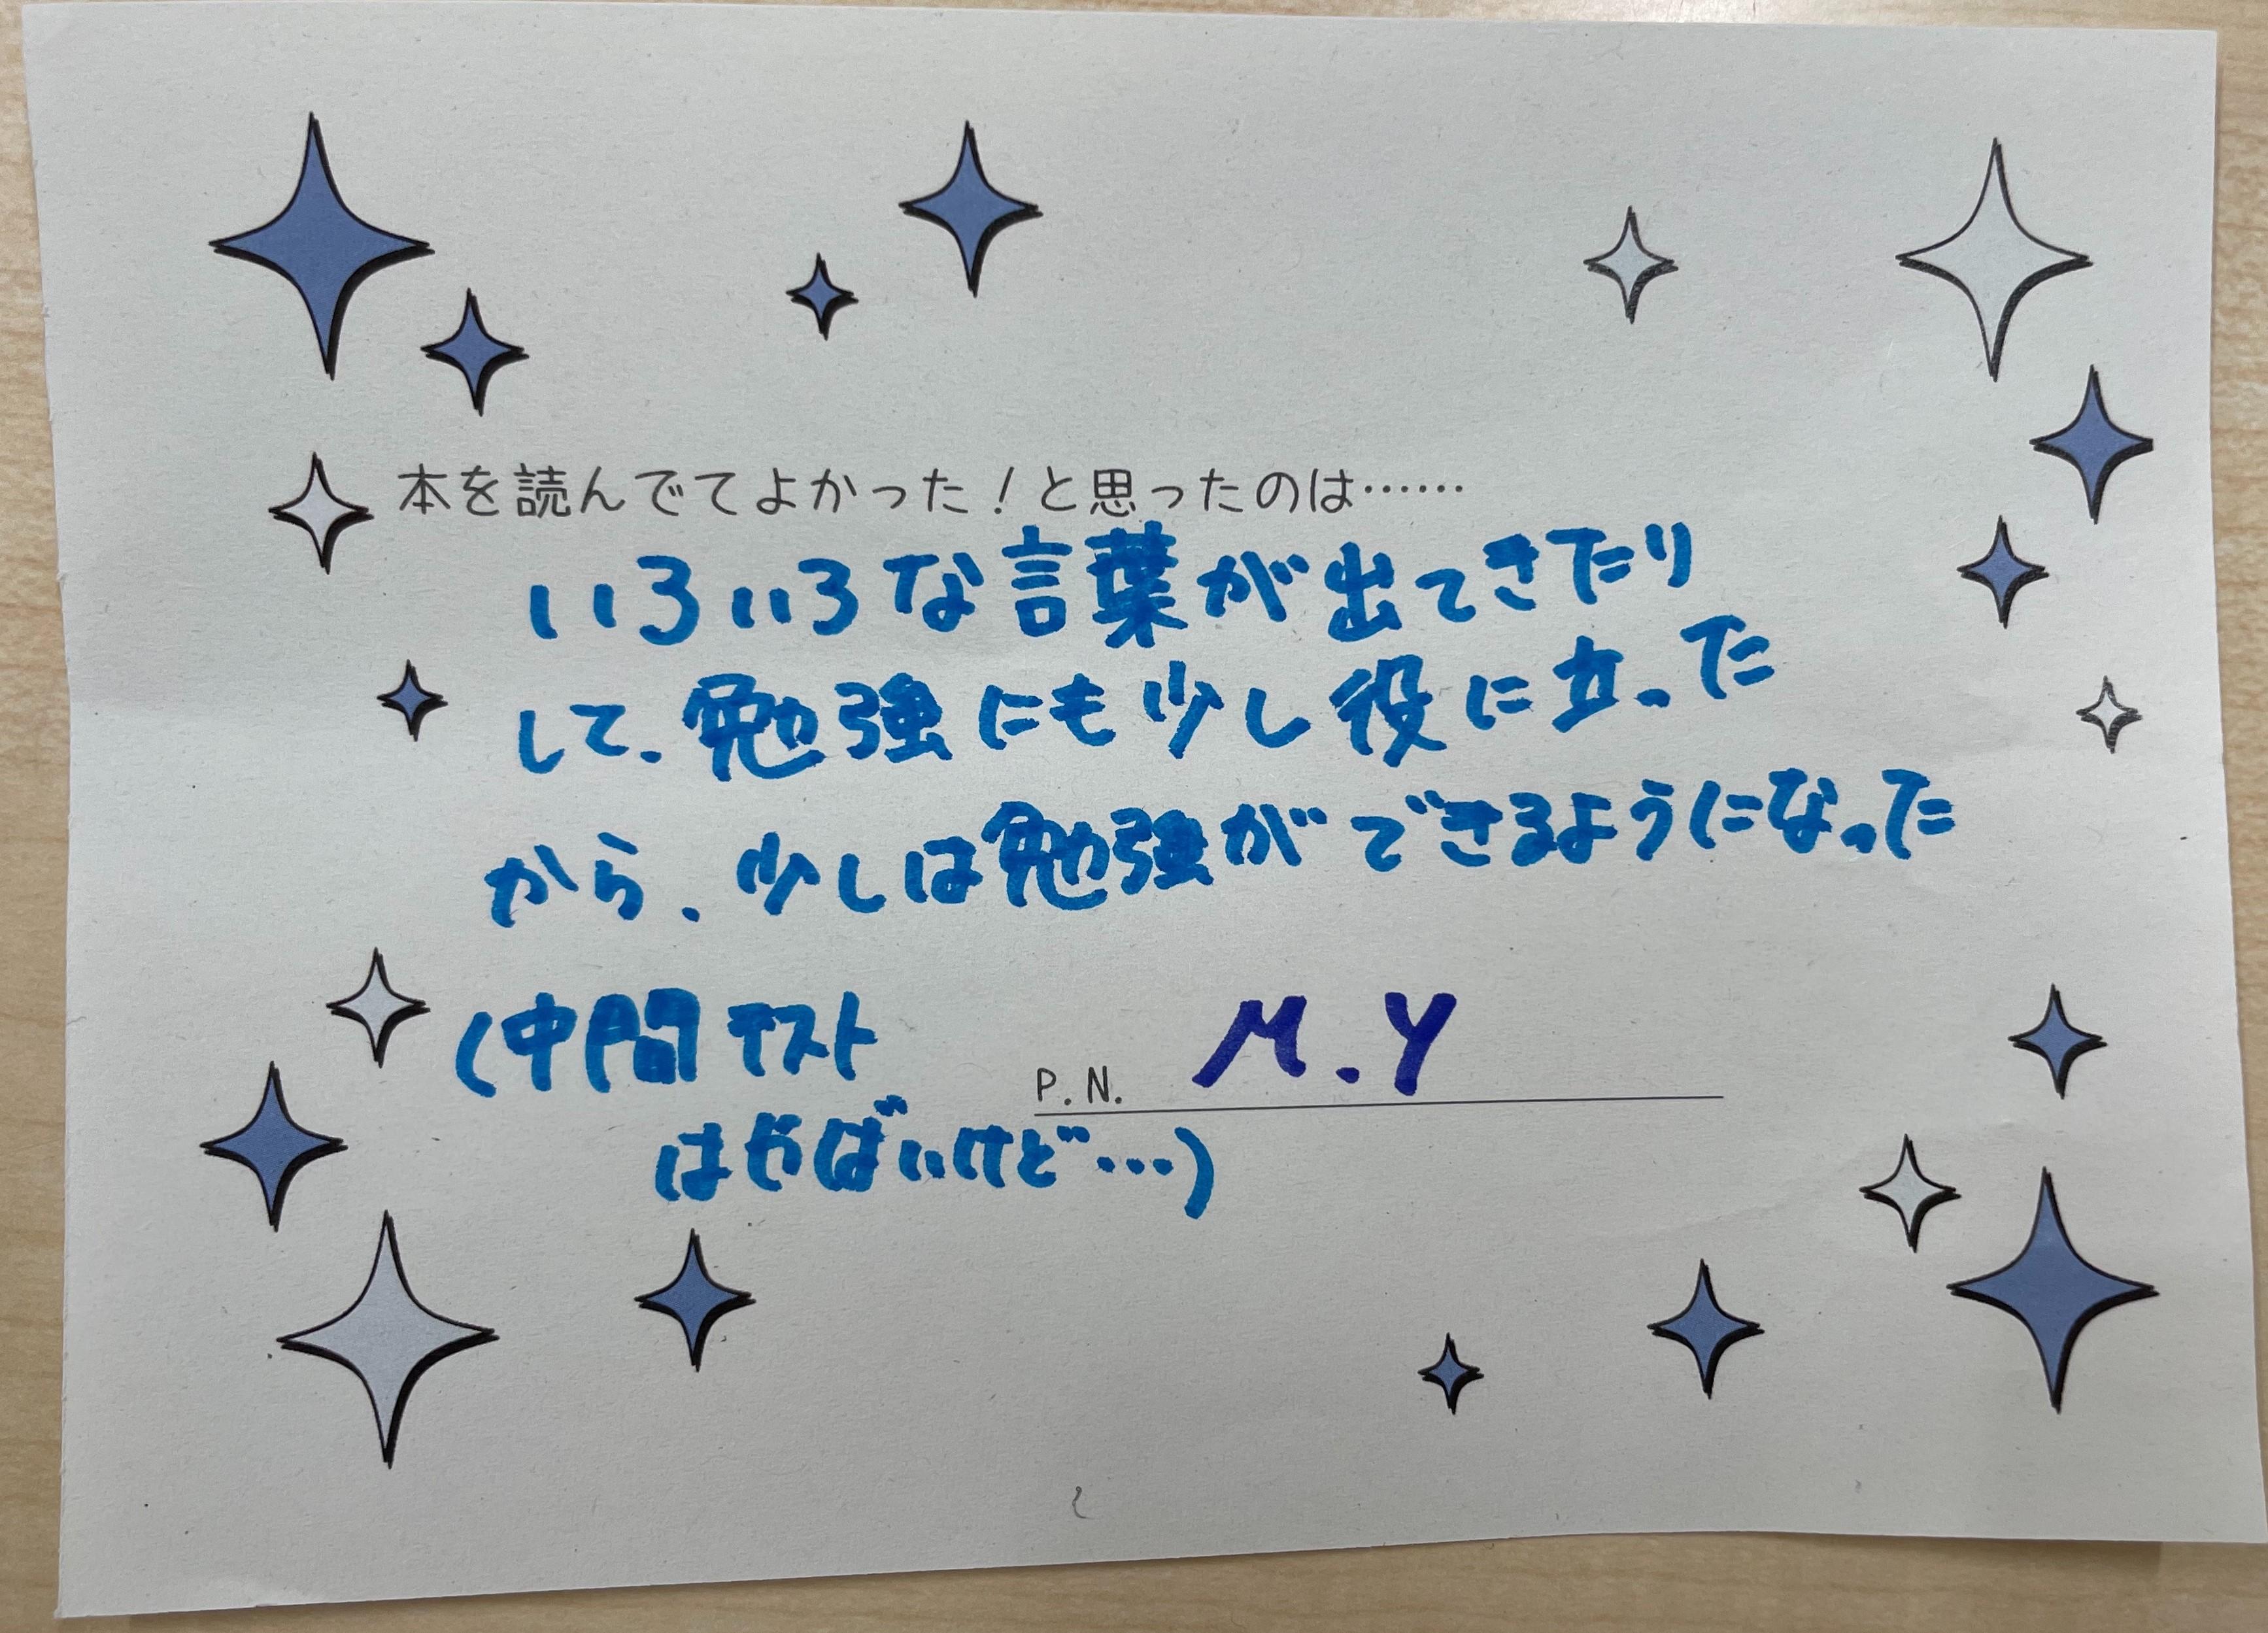 本を読んでてよかった!と思ったのは……
いろいろな言葉が出てきたり
して、勉強にも少し役に立った
から、少しは勉強ができるようになった
(中間テスト
はやばいけど…)
P.N. M.Y